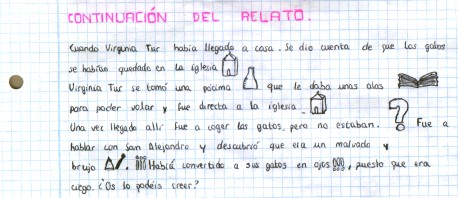 CONTINUACIÓN DEL RELATO.
Cuando Virginia Tur había llegado a casa. Se dio cuenta de que los gatos
se habían quedado en la iglesia
Virginia Tur se tomó una pócima que le daba unas alas
para poder volar y fue directa a la iglesia.
Una vez llegado allí fue a coger los gatos, pero no estaban. ? Fue a
hablar con San Alejandro y descubrió que era un malvado y
brujo. Había convertido a sus gatos en ojos, puesto que era
ciego. ¿Os lo podéis creer?